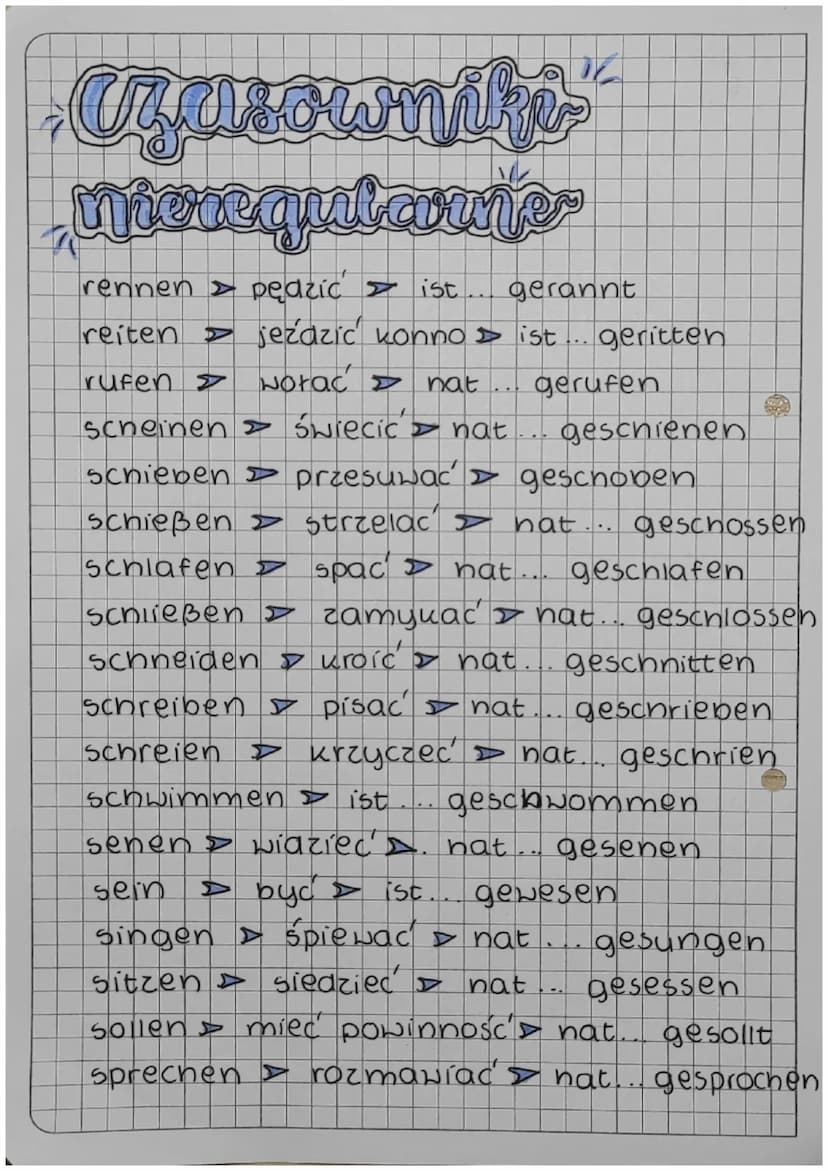 czasowniki
nieregularne
rennen ➢ pędzić ➢ ist... gerannt
reiten ➢ jeździć konno ➢ ist... geritten
rufen ➢ wołać ➢ hat ... gerufen
scheinen ➢ świecić ➢ hat... geschienen
schieben ➢ przesuwać ➢ geschoben
schießen ➢ strzelać ➢ hat... geschossen
schlafen ➢ spać ➢ hat... geschlafen
schließen ➢ zamykać ➢ hat... geschlossen
schneiden ➢ kroić ➢ hat... geschnitten
schreiben ➢ pisać ➢ hat... geschrieben
schreien ➢ krzyczeć ➢ hat... geschrien
schwimmen ➢ ist.... geschwommen
sehen ➢ widzieć ➢. hat... gesehen
sein ➢ być ➢ ist... gewesen
singen ➢ śpiewać ➢ hat ... gesungen
sitzen ➢ siedzieć ➢ hat ... gesessen
sollen ➢ mieć powinność ➢ hat... gesollt
sprechen ➢ rozmawiać ➢ hat... gesprochen